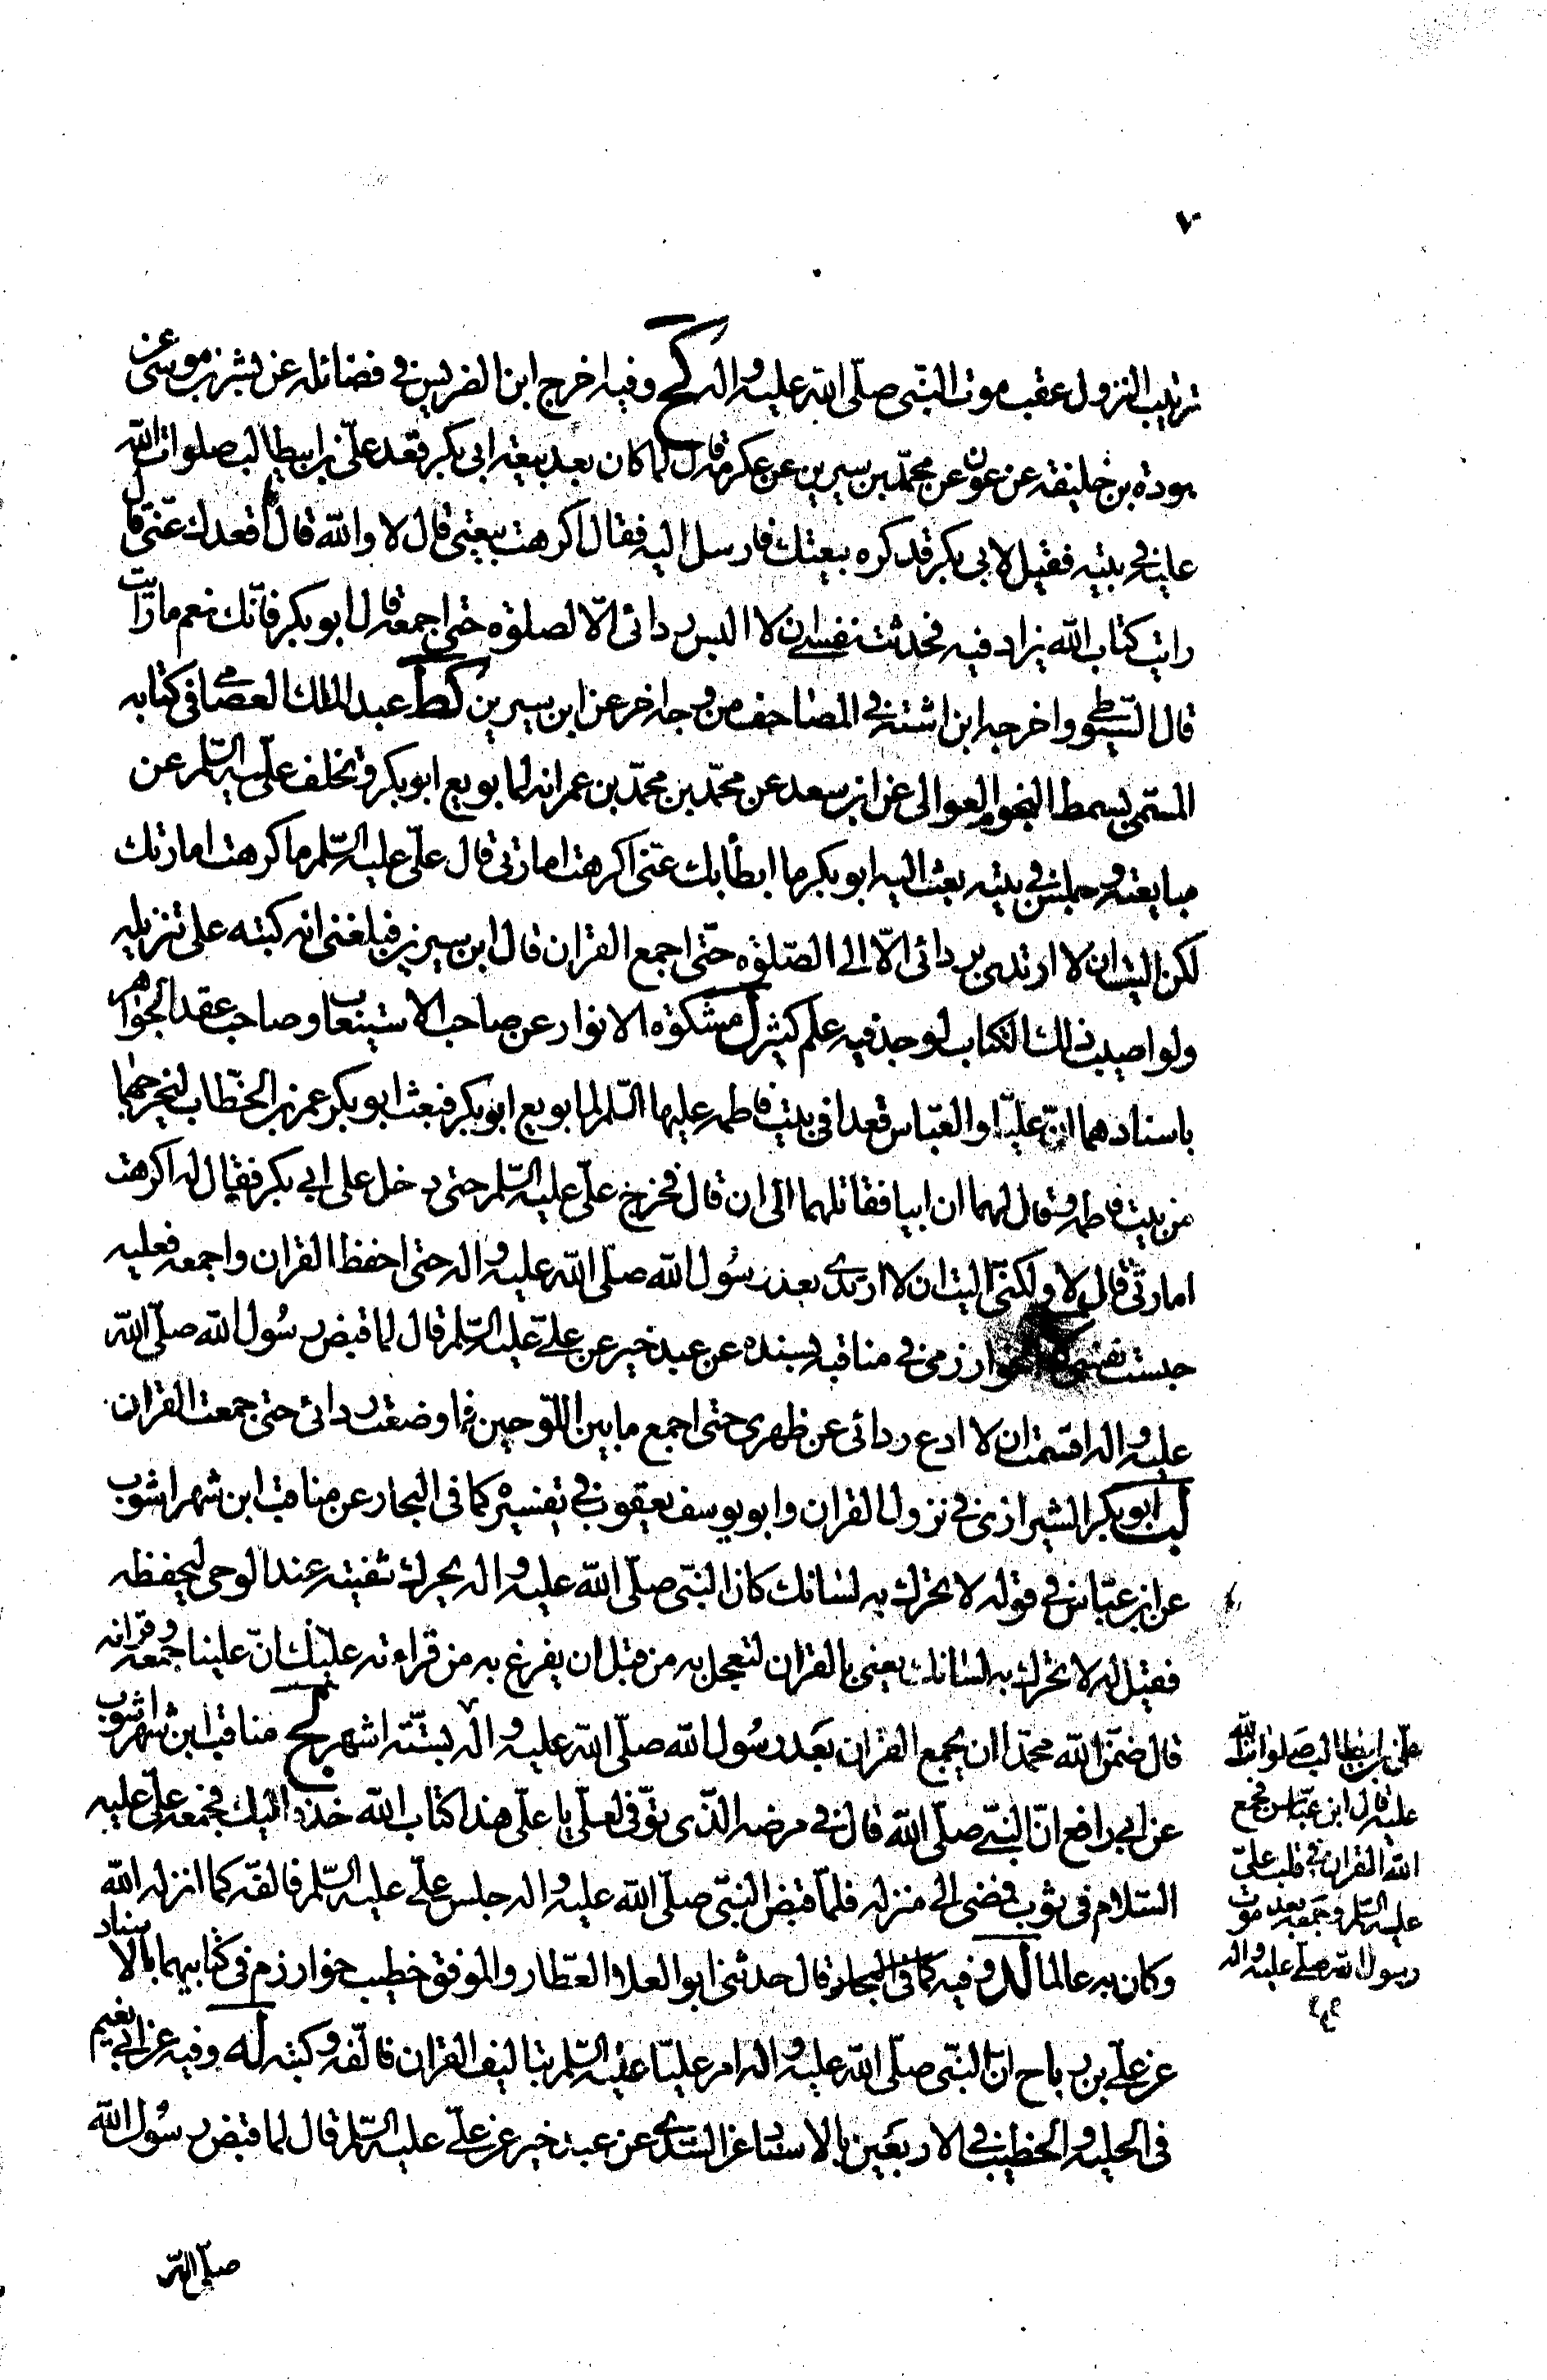 ٧
ترتيب النزول عقب موت النبّى صلّى الله عليه واله كح وفيه اخرج ابن الضريس فى فضائله عن بشر بن موسى عن
هودة بن خليفة عن عون عن محمّد بن سيرين عن عكرمة قال لما كان بعد بيعة ابى بكر قعد علّى بن ابيطالب صلوات الله
عليه فى بيته فقيل لابى بكر قد كره بيعتك فارسل اليه فقال اكرهت بيعتى قال لا والله قال ما اقعدك عنّى قال
رايت كتاب الله يزاد فيه فحدثت نفسى ان لا البس ردائى الّا لصلوة حتى اجمعه قال ابو بكر فانّك نعم ما رايت
قال السيّوطى واخرجه ابن اشته فى المصاحف من وجه اخر عن ابن سيرين كط عبد الملك العصامى فى كتابه
المسّمى بسمط النجوم العوالى عن ابن سعد عن محمّد بن محمّد بن عمر انه لما بويع ابو بكر وتخلف علّى عليه السّلم عن
مبايعته وجلس فى بيته بعث اليه ابو بكر ما ابطأ بك عنّى اكرهت امارتى قال علّى عليه السّلم ما كرهت امارتك
لكن اليت ان لا ارتدى بردائى الّا الى الصّلوة حتّى اجمع القران قال ابن سيرين فبلغنى انه كتبه على تنزيله
ولو اصيب ذلك الكتاب لوجد فيه علم كثير ل مشكوة الانوار عن صاحب الاستيعاب وصاحب عقد الجواهر
باسنادهما انّ عليّا والعبّاس قعدا فى بيت فاطمه عليها السّلم لما بويع ابو بكر فبعث ابو بكر عمر بن الخطّاب ليخرجهما
من بيت فاطمه وقال لهما ان ابيا فقاتلهما الى ان قال فخرج علّى عليه السّلم حتى دخل على ابى بكر فقال له اكرهت
امارتى قال لا ولكنّى اليت ان لا ارتدى بعد رسُول الله صلّى الله عليه واله حتى احفظ القران واجمعه فعليه
حبست نفسى الخوارزمى فى مناقبه بسنده عن عبد خير عن علّى عليه السّلم قال لما قبض رسُول الله صلّى الله
عليه واله اقسمت ان لا ادع ردائى عن ظهرى حتى اجمع ما بين اللّوحين فما وضعت ردائى حتى جمعت القران
لب ابو بكر الشيرازى فى نزول القران وابو يوسف يعقوب فى تفسيره كما فى البحار عن مناقب ابن شهر اشوب
عن ابن عبّاس فى قوله لا تحرك به لسانك كان النبّى صلّى الله عليه واله يحرك شفيته عند الوحى ليحفظه
فقيل له لا تحرك به لسانك يعنى بالقران لتعجل به من قبل ان يفرغ به من قراءته عليك انّ علينا جمعه وقرانه
قال ضمن الله محمّدا ان يجمع القران بعد رسُول الله صلّى الله عليه واله بستّة اشهر لج مناقب ابن شهر اشوب
عن ابى رافع انّ النبّى صلّى الله قال فى مرضه الّذى توّفى لعلى يا علّى هذا كتاب الله خذه اليك فجمعه علّى عليه
السّلام فى ثوب فمضى الى منزله فلمّا قبض النبّى صلّى الله عليه واله جلس علّى عليه السّلم فالفّه كما انزله الله
وكان به عالما لد وفيه كما فى البحار قال حدثنى ابو العلا العطّار والموفق خطيب خوارزم فى كتابيهما بالاسناد
عن علّى بن رباح انّ النبّى صلّى الله عليه واله امر عليّا عليه السّلم بتاليف القران فالّفه وكتبه له وفيه عن ابى نعيم
فى الحليه والخطيب فى الاربعين بالاسناد عن السّدى عن عبد خير عن علّى عليه السّلم قال لما قبض رسُول الله
صلّى الله
علّى بن ابيطالب صلوات الله
عليه قال ابن عبّاس فجمع
الله القران فى قلب علّى
عليه السّلم وجمعه بعد موت
رسول الله صلّى عليه واله